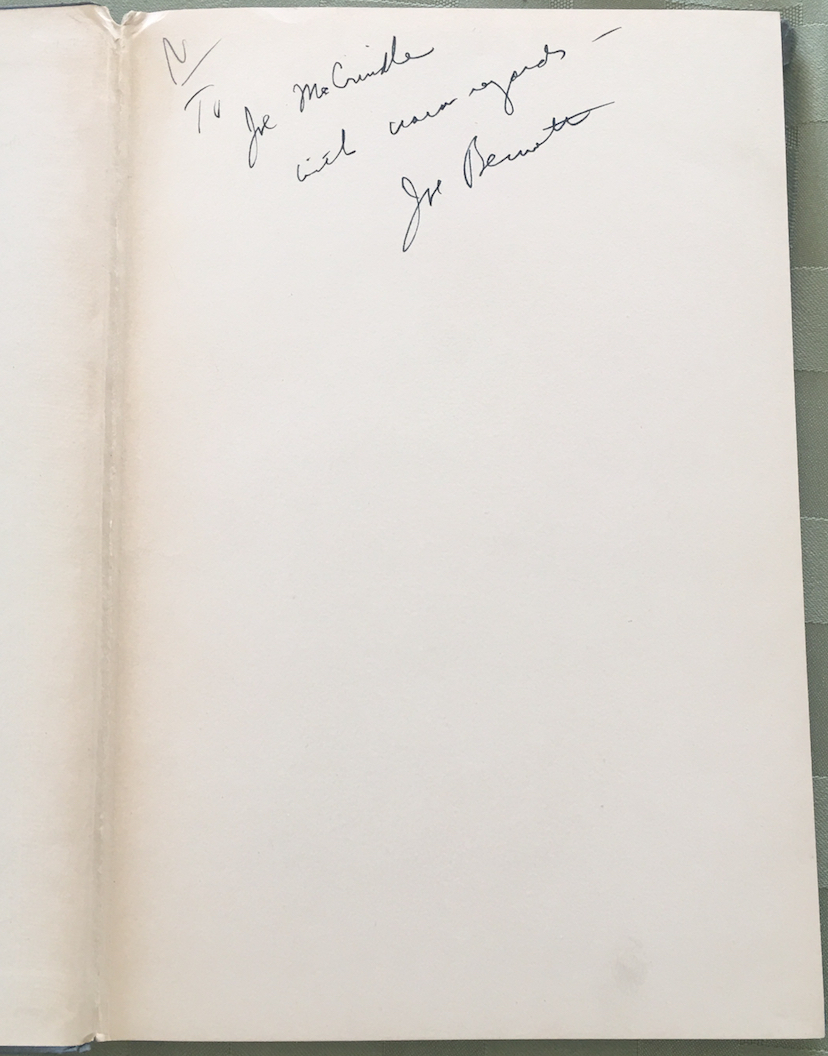 N
To Joe McCrindle
with warm regards —
Joe Bennett